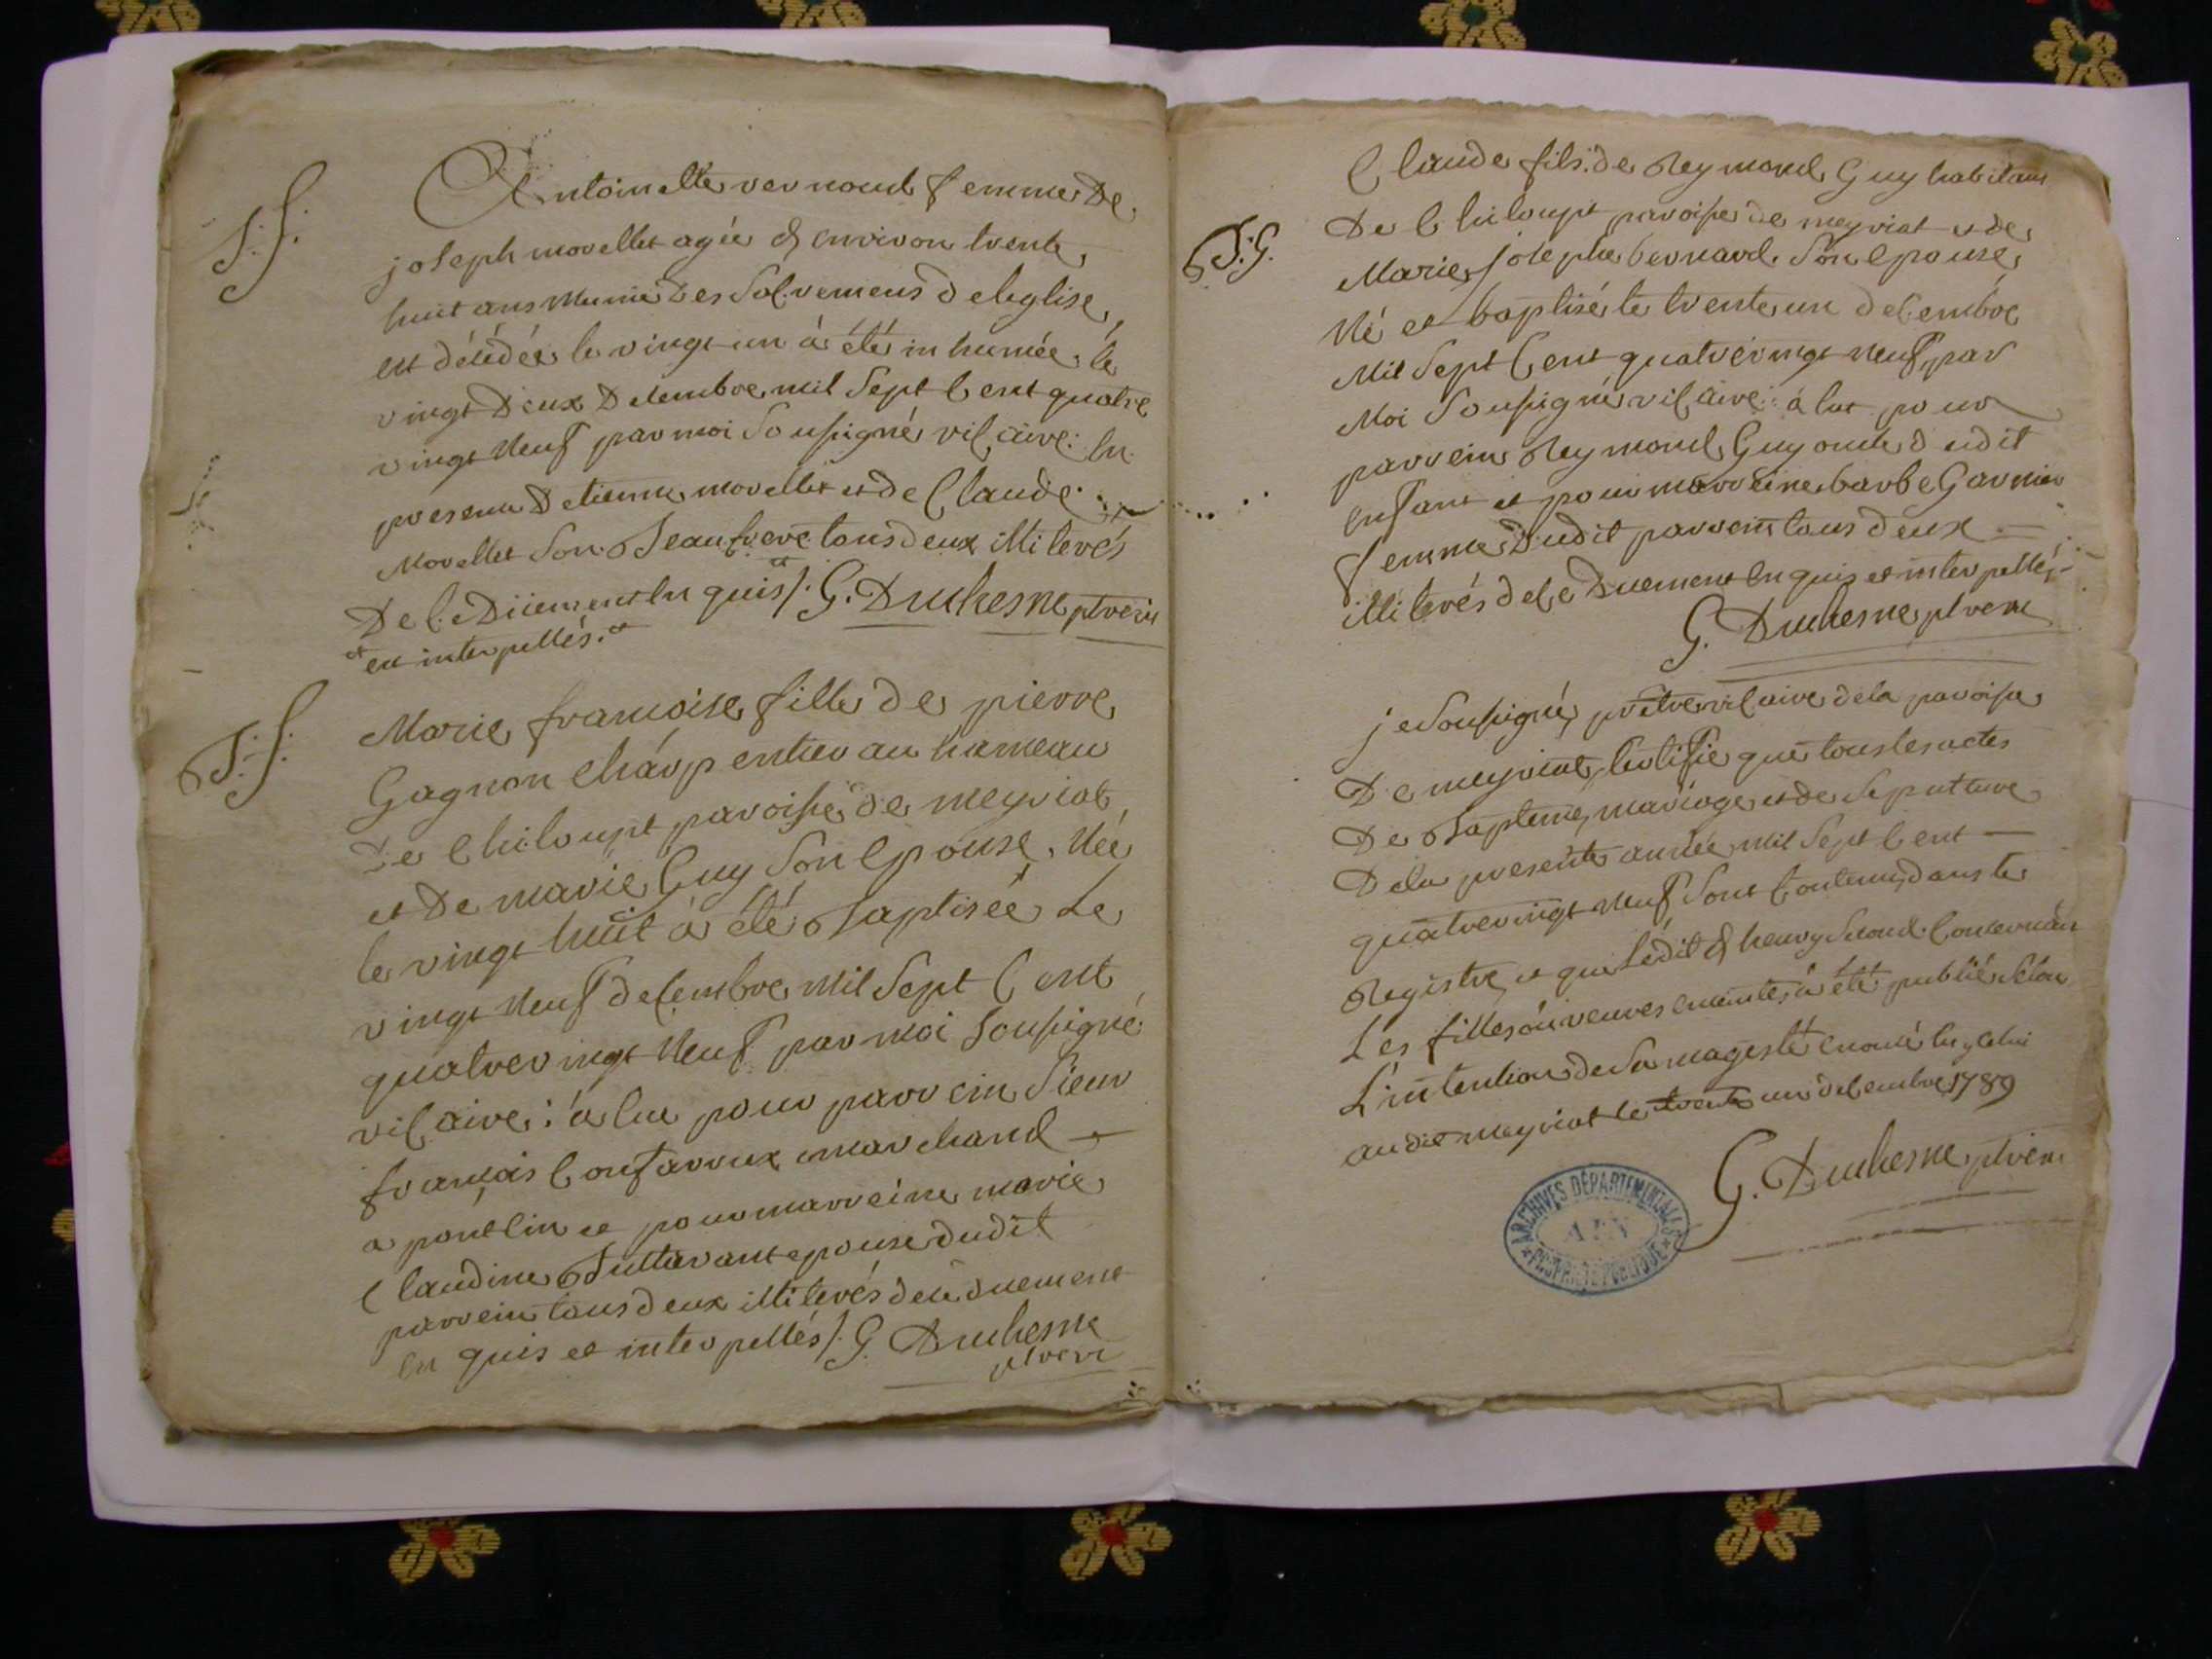 S. f.
Antoinette vernoud femme De
joseph morellet agée d'environ trente
huit ans munie Des Sacremens de leglise
est décédée le vingt un à été inhumée le
vingt Deux Decembre mil Sept Cent quatre
vingt Neuf par moi Soussigné vicaire: En
presence D'etienne morellet et de Claude
Morellet Son Beaufrere tous deux illiterés
De Ce Düement enquis /. G. Duchesne ptre vicre
et interpellés.
B. f.
Marie francoise fille de pierre
Gagnon Charpentier au hameau
De Chiloup paroisse de meyriat
et De marie Guy Son Epouse, Née
le vingt huit à été Baptisée Le
vingt Neuf decembre Mil Sept Cent
quatrevingt Neuf par moi Soussigné
vicaire: à Eue pour parrein Sieur
françois Confavreux marchand
a pontdin et pour marreine marie
Claudine epouse dudit
parrein tous deux illiterés de ce duement
Enquis et interpellés /. G. Duchesne
ptre vicre
B. G.
Claude fils de Reymond Guy habitant
De Chiloupt paroisse de meyriat et de
Marie Josephe bernard Son Epouse
Né et baptisé le trente un decembre
Mil Sept Cent quatrevingt Neuf par
Moi Soussigné vicaire: à Eut pour
parrein Reymond Guy oncle dudit
Enfant et pour marreine barbe Garnier
femme Dudit parrein tous deux
illiterés de Ce Duement Enquis et interpellés
G. Duchesne ptre vicre
je Soussigné, prêtre vicaire dela paroisse
De meyriat, Certifie que tous les actes
De Baptême, mariage et de Sepulture
Dela presente année mil Sept Cent
quatrevingt Neuf Sont Contenus dans le
Registre, et que L'édit d'henry Second Concernant
Les filles ou veuves enceintes, à été publié Selon
L'intention de Sa magesté enoncé En yCelui
audit meyriat le trente un decembre 1789
G. Duchesne ptre vicre
ARCHIVES DÉPARTEMENTALES
AIN
PROPRIÉTÉ PUBLIQUE